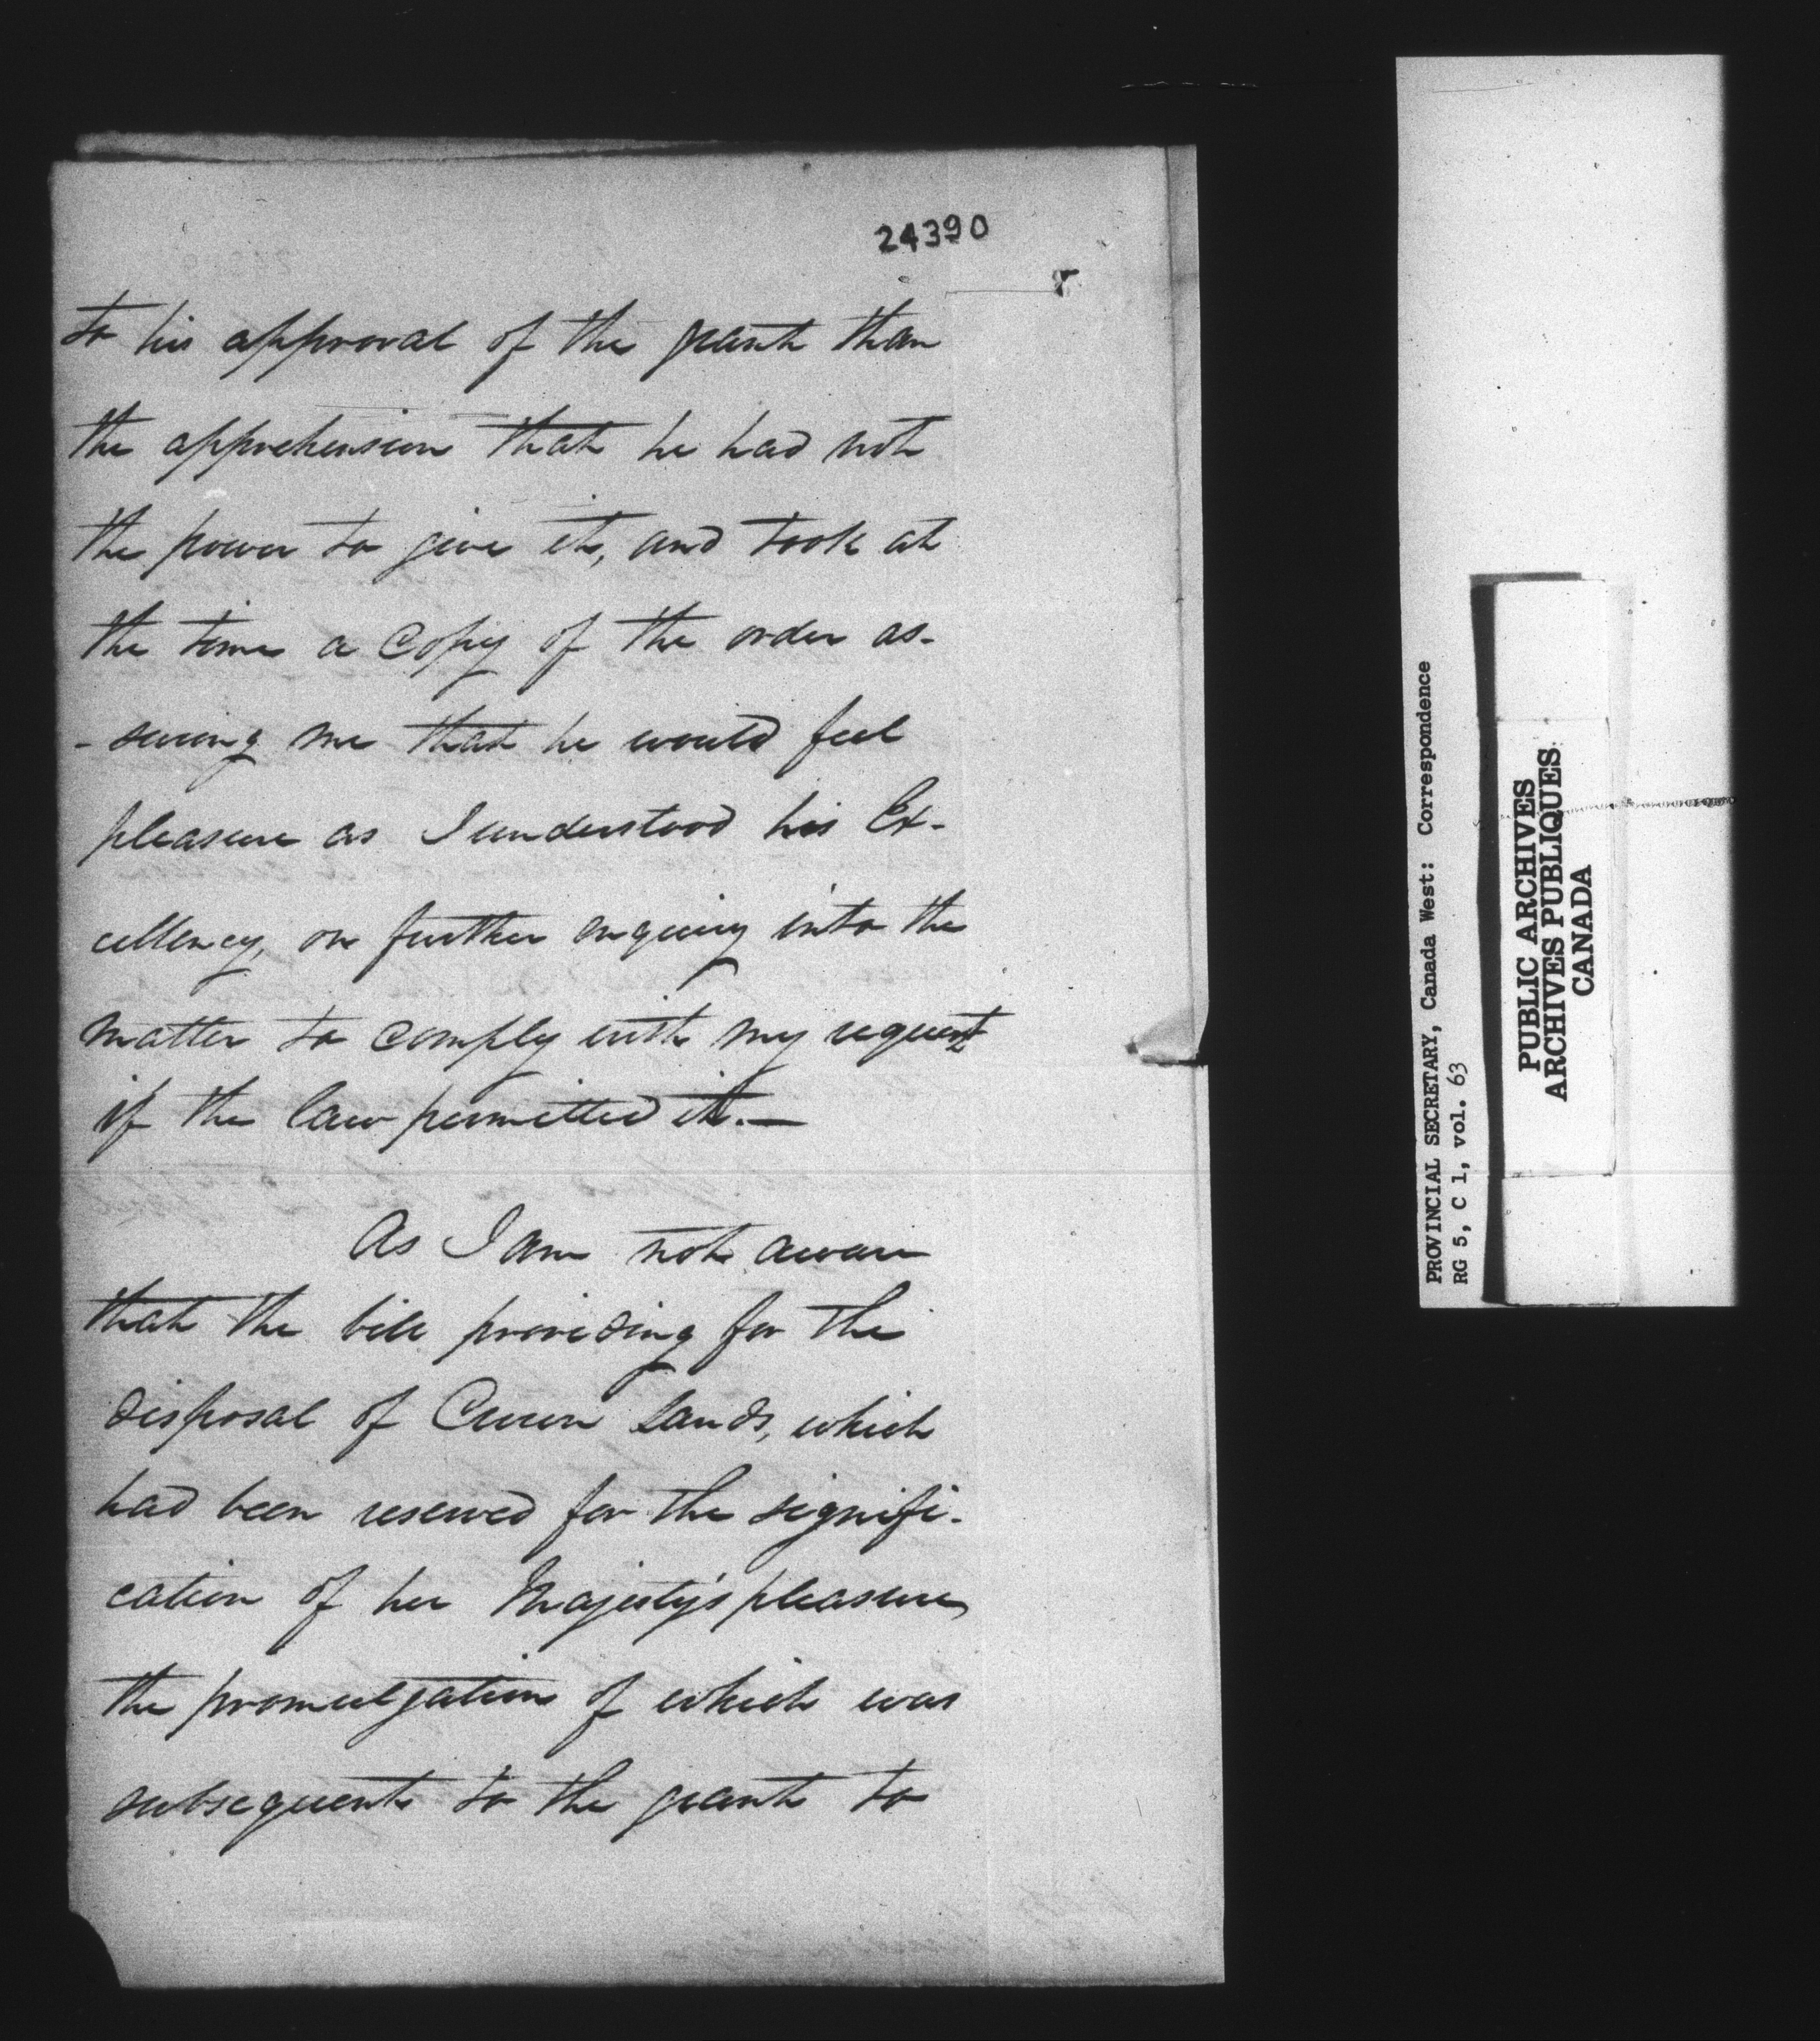 24390
to his approval of the grant than
the apprehension that he had not
the power to give it, and took at
the time a copy of the order as-
-suring me that he would feel
pleasure as I understood his Ex-
cellency, on further enquiry into the
matter to comply with my request
if the law permitted it.—
As I am not aware
that the bill providing for the
disposal of Crown Lands, which
had been reserved for the signifi-
cation of her Majesty's pleasure
the promulgation of which was
subsequent to the grant to
PROVINCIAL SECRETARY, Canada West: Correspondence
RG 5, C 1, vol. 63
PUBLIC ARCHIVES
ARCHIVES PUBLIQUES
CANADA